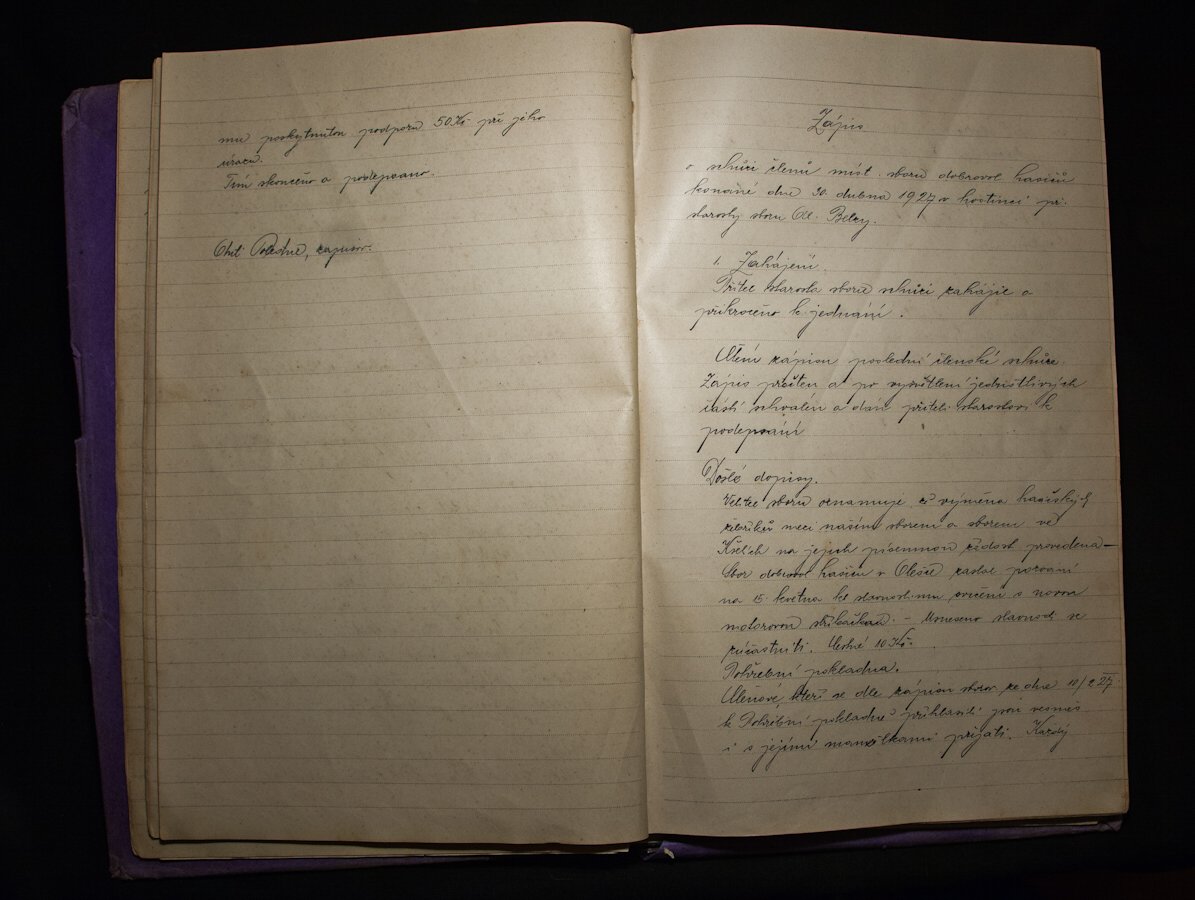 mu poskytnuta podpora 50 Kč při jeho
úrazu.
Tím skončeno a podepsáno.
zapisov.
Zápis
o schůzi členů míst. sboru dobrovol. hasičů
konané dne 30. dubna 1927 v hostinci př.
starosty sboru Ol. Belzy.
1. Zahájení.
Přítel starosta sboru schůzi zahájil a
přikročeno k jednání.
Čtení zápisu poslední členské schůze.
Zápis přečten a po vysvětlení jednotlivých
částí schválen a dán příteli starostovi k
podepsání
Došlé dopisy.
Velitel sboru oznamuje, že výměna hasičských
žebříků mezi naším sborem a sborem ve
na jejich písemnou žádost provedena –
Sbor dobrovol. hasičů v Olešce zaslal pozvání
na 15. května ke slavnostnímu cvičení s novou
motorovou stříkačkou. – Usneseno slavnosti se
zúčastniti. 10 Kč.
Pohřební pokladna.
Členové, kteří se dle zápisu sboru ze dne 10/2 27
k Pohřební pokladně přihlásili jsou vesměs
i s jejími manželkami přijati. Každý